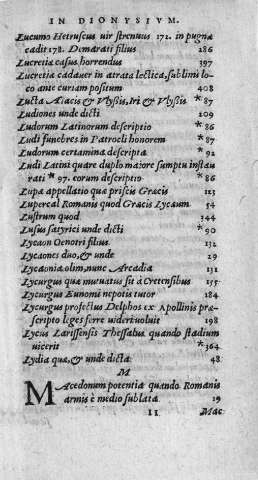 IN DIONYSIVM.
Lucumo Hetruscus uir strenuus 172. in pugna
cadit 178. Demarati filius 186
Lucretiæ casus horrendus 397
Lucretiæ cadauer in atrata lectica, sublimi lo
co ante curiam positum 408
Lucta Aiacis & Vlyßis, Iri & Vlyßis *87
Ludiones unde dicti 109
Ludorum Latinorum descriptio *86
Ludi funebres in Patrocli honorem *87
Ludorum certamina descripta *92
Ludi Latini quare duplo maiore sumptu instau
rati *97. eorum descriptio *86
Lupa appellatio quæ priscis Græcis 113
Lupercal Romanis quod Græcis Lycæum 54
Lustrum quod 344
Lusus satyrici unde dicti *90
Lycaon Oenotri filius 132
Lycaones duo, & unde 29
Lycaonia olim, nunc Arcadia 131
Lycurgus quæ mutuatus sit à Cretensibus 155
Lycurgus Eunomi nepotis tutor 184
Lycurgus profectus Delphos ex Apollinis præ
scripto leges ferre uideri uoluit 198
Lycus Larissensis Thessalus quando stadium
uicerit *364
Lydia quæ, & unde dicta 48
M
MAcedonum potentia quando Romanis
armis è medio sublata 19
ll Mac